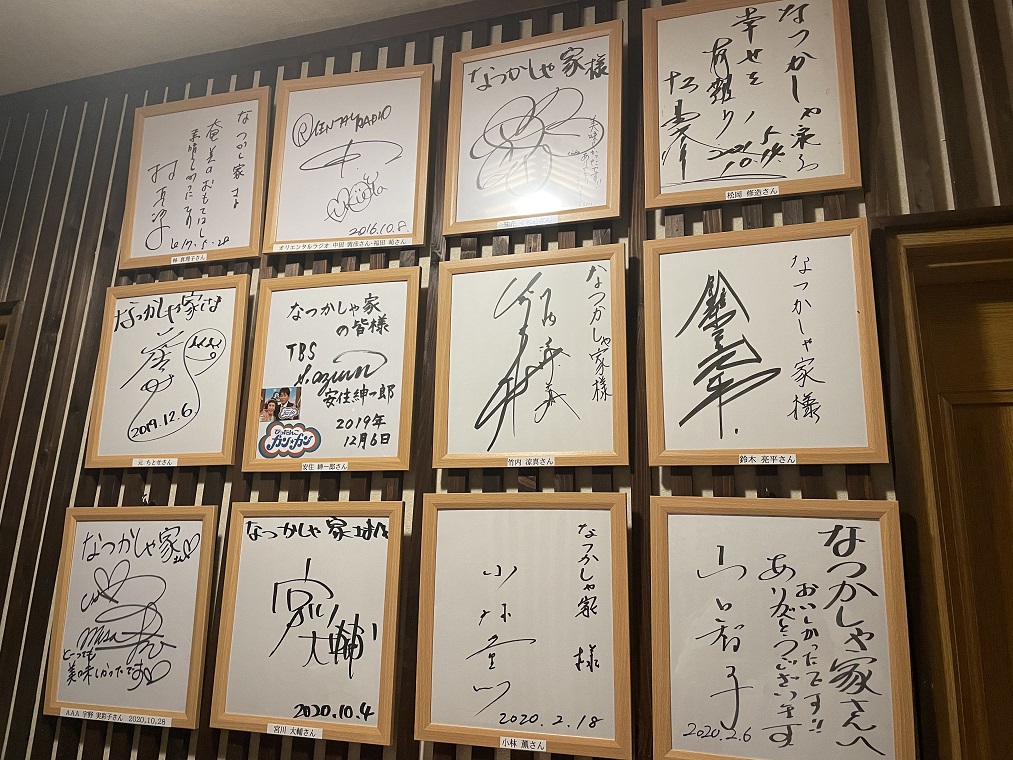 なつかし家さま
奄美のおもてなし
素晴らしかったです
林真理子
林 真理子さん
ORIENTAL RADIO
2016.10.8.
オリエンタルラジオ 中田 敦彦さん・福田 崚さん
なつかしゃ家様
なつかしゃ家さん
幸せを
有難う!
2021.5
10.14.
松岡 修造さん
なつかしゃ家さま
2019.12.6
元 ちとせさん
なつかしゃ家
の皆様
TBS
安住紳一郎
2019年
12月6日
ぴったんこ
カン・カン
安住 紳一郎さん
なつかしゃ家様
竹内涼真
竹内 涼真さん
なつかしゃ家様
鈴木 亮平さん
なつかしゃ家さん
misako
とーっても
美味しかったです
AAA 宇野 実彩子さん 2020.10.28
なつかしゃ家さん江
宮川大輔
2020.10.4
宮川 大輔さん
なつかしゃ家
様
小林薫
2020.2.18
小林 薫さん
なつかしゃ家さんへ
おいしかったです!!
ありがとうございます
山口智子
2020.2.6